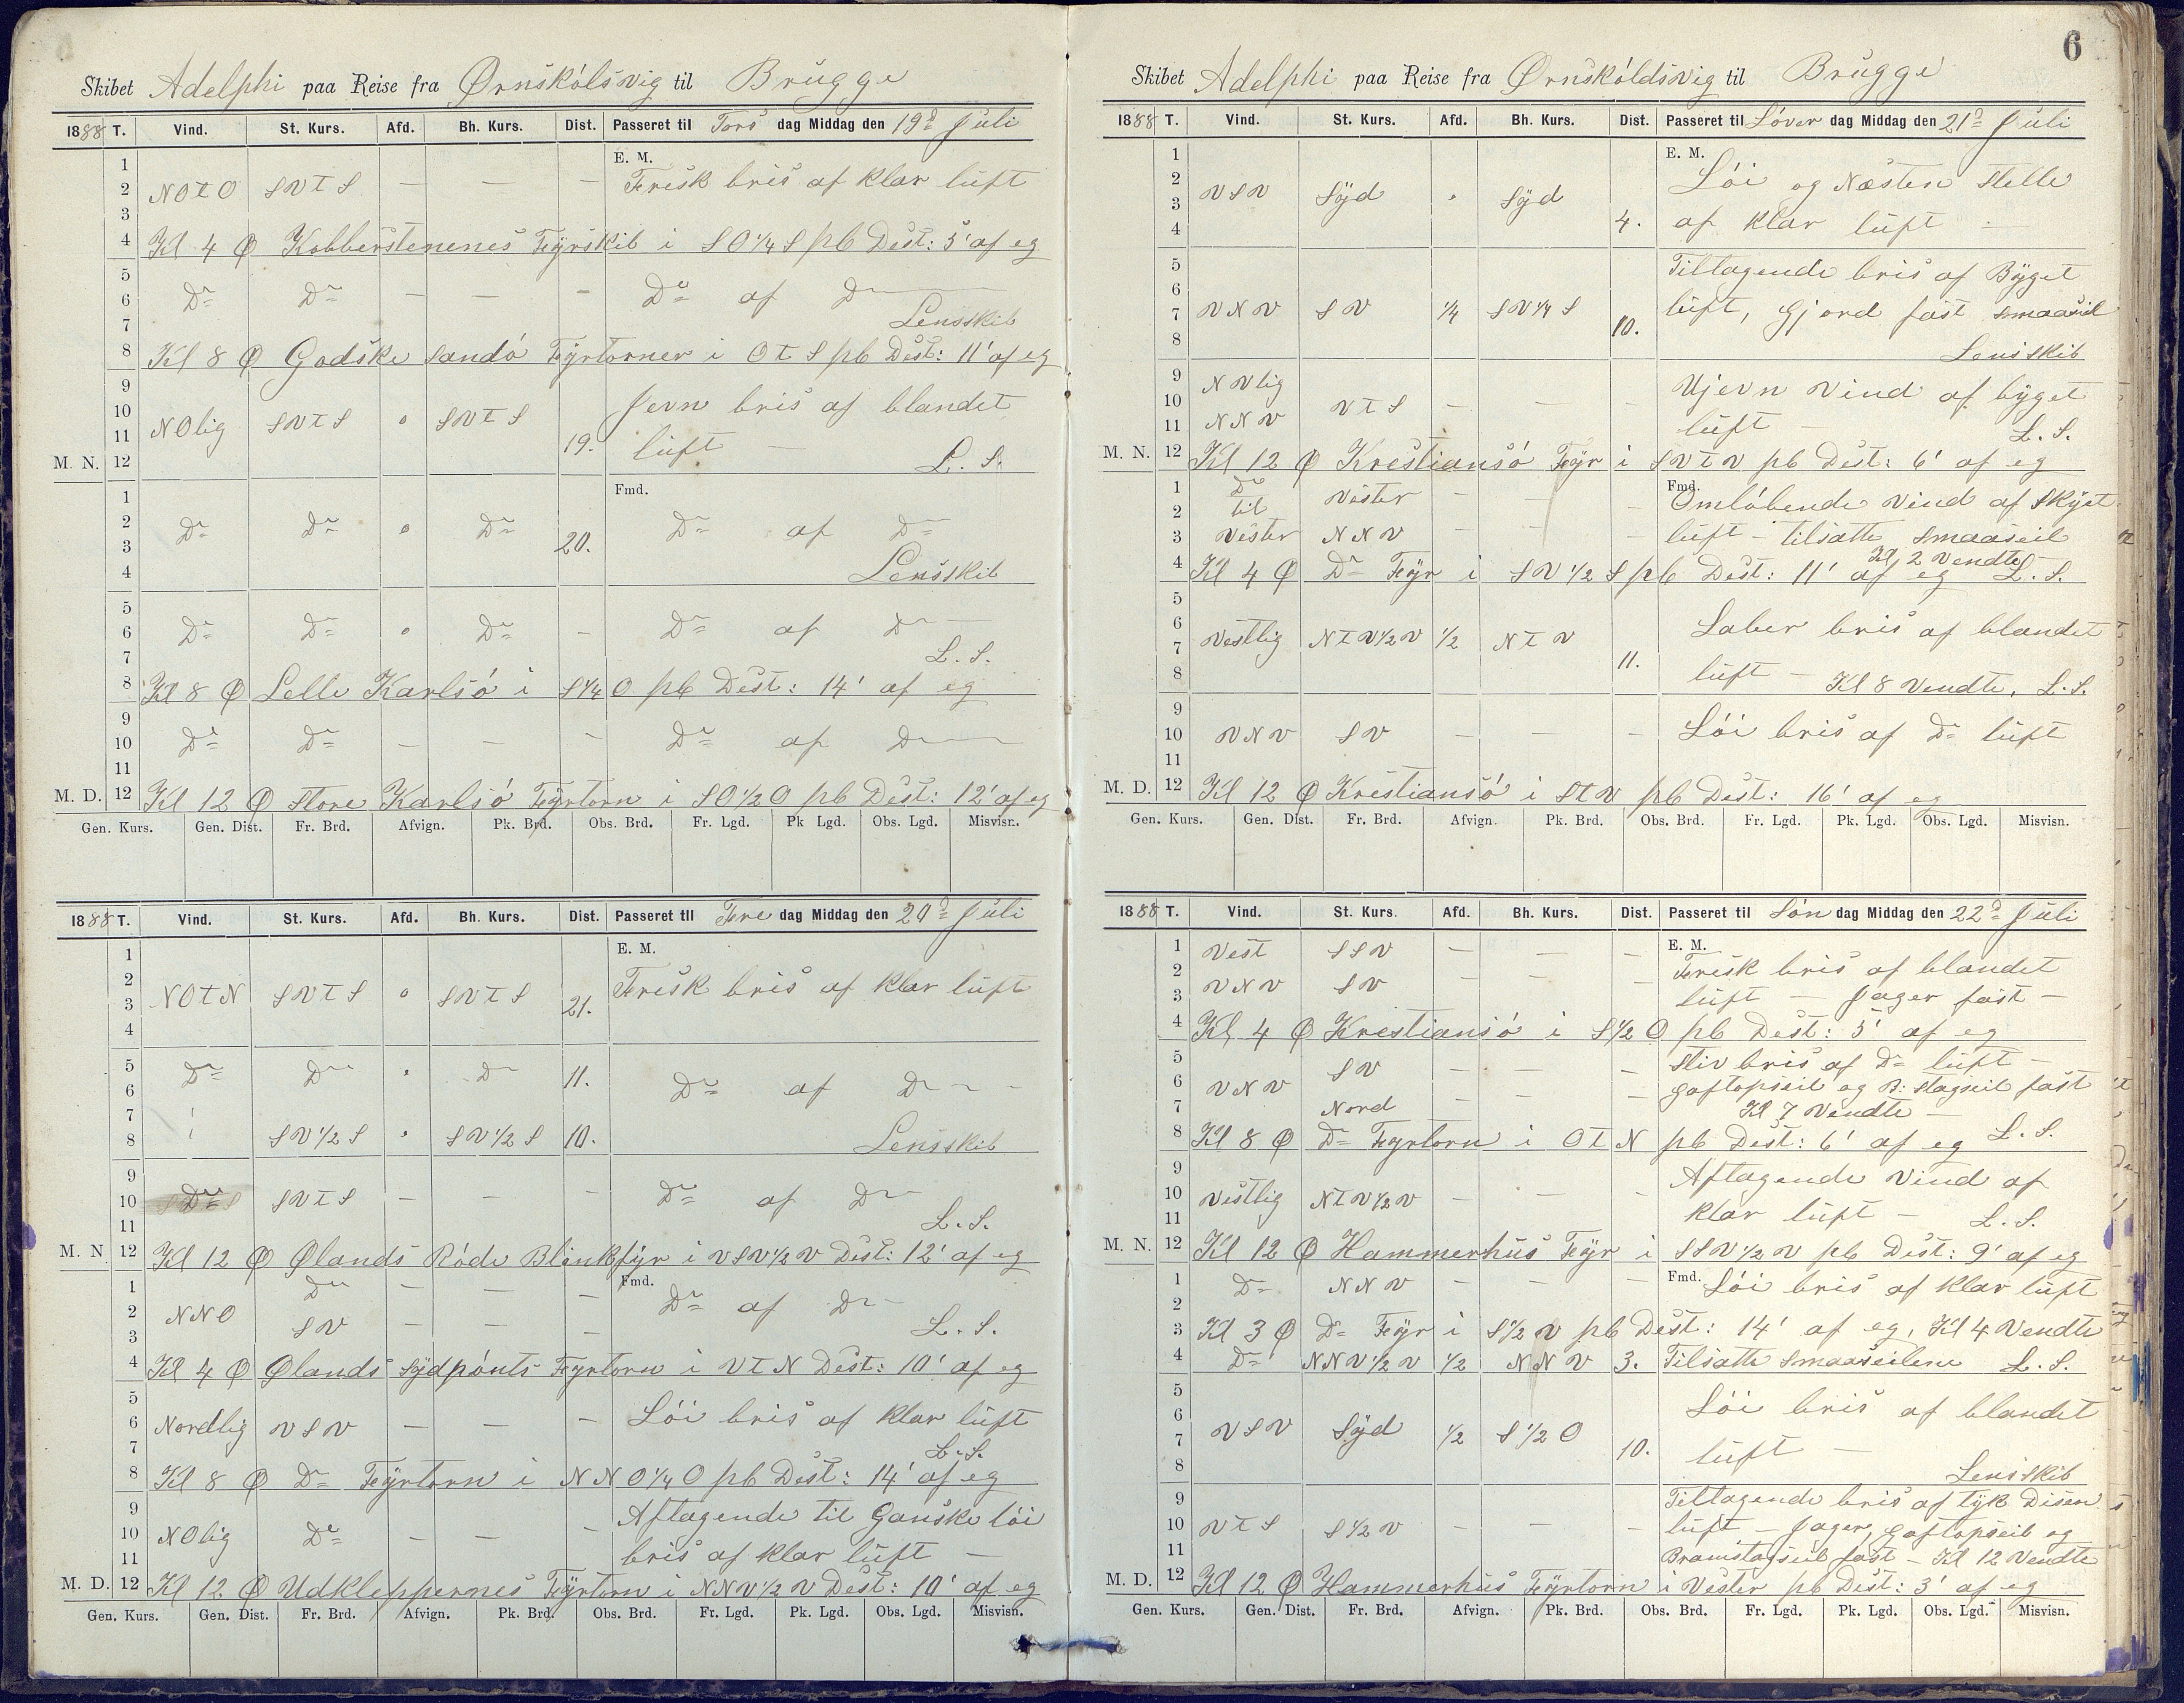 Skibet Adelphi paa Reise fra Ørnskólsvig til Brügge
1888 T. Vind. St. Kurs. Afd. Bh. Kurs. Dist. Passeret til Tors dag Middag den 19d Juli
E. M.
1
2 NOtO SVtS — — — Frisk bris af klar lüft
3
4 Kl 4 Ꝋ Kobberstenenes Fÿrskib i SO¼S pb Dest: 5' af eg
5
6 Do Do — — — Do af Do
7 Lensskib
8 Kl 8 Ꝋ Godske Sandó Fÿrtorner i OtS pb Dest: 11' af eg
9
10 NOlig SVtS o SVtS Jevn bris af blandet
11 19. lüft —
M. N. 12 L. S.
Fmd.
1
2 Do Do o Do 20. Do af Do
3
4 Lensskib
5
6 Do Do o Do — Do af Do
7 L. S.
8 Kl 8 Ꝋ Lelle Karlsó i S¼O pb Dest: 14' af eg
9
10 Do Do — — — Do af Do
11
M. D. 12 Kl 12 Ꝋ Store Karlsó Fÿrtorn i SO½O pb Dest: 12' af eg
Gen. Kurs. Gen. Dist. Fr. Brd. Afvign. Pk. Brd. Obs. Brd. Fr. Lgd. Pk Lgd. Obs. Lgd. Misvisn.
1888 T. Vind. St. Kurs. Afd. Bh. Kurs. Dist. Passeret til Fre dag Middag den 20d Juli
E. M.
1
2 Frisk bris af klar lüft
3 NOtN SVtS o SVtS 21.
4
5
6 Do Do " Do 11. Do af Do
7
8 SV½S " SV½S 10. Lensskib
9
10 Do SVtS — — — Do af Do
11 L. S.
M. N 12 Kl 12 Ꝋ Ølands Róde Blinkfÿr i VSV½V Dest: 12' af eg
Fmd.
1 Do — — — Do af Do
2 NNO
3 SV — — — L. S.
4 Kl 4 Ꝋ Ølands Sÿdpónts Fyrtorn i VtN Dest: 10' af eg
5
6 Nordlig VSV — — — Lói bris af klar lüft
7 L. S.
8 Kl 8 Ꝋ Do Fÿrtorn i NNO¼O pb Dest: 14' af eg
9 Aftagende til Ganske lói
10 NOlig Do — — —
11 bris af klar lüft —
M. D. 12 Kl 12 Ꝋ Udkleppernes Fÿrtorn i NNV½V Dest: 10' af eg
Gen. Kurs. Gen. Dist. Fr. Brd. Afvign. Pk. Brd. Obs. Brd. Fr. Lgd. Pk. Lgd. Obs. Lgd. Misvisn.
6
Skibet Adelphi paa Reise fra Ørnskóldsvig til Brügge
1888 T. Vind. St. Kurs. Afd. Bh. Kurs. Dist. Passeret til Lóver dag Middag den 21d Juli
E. M.
1 Lói og Næsten Stelle
2
3 VSV Sÿd " Sÿd
4 4. af klar lüft —
5 Tiltagende bris af Bÿget
6
7 VNV SV ¼ SV¼S 10. lüft, Gjord fast smaaseil
8 Lensskib
9 NVlig Ujevn Vind af bÿget
10 VtS — — —
11 NNV lüft — L. S.
M. N. 12 Kl 12 Ꝋ Krestiansó Fÿr i SVtV pb Dest: 6' af eg
Fmd.
1 Do Vester — — — Omlóbende Vind af Skÿet
2 til
3 Vester NNV — — — lüft — tilsatte smaaseil
Kl 2 Vendte
4 Kl 4 Ꝋ Do Fÿr i SV½S pb Dest: 11' af eg L. S.
5
6 Laber bris af blandet
7 Vestlig NtV½V ½ NtV 11.
8 lüft — Kl 8 Vendte, L. S.
9
10 VNV SV — — — Lói bris af Do lüft
11
M. D. 12 Kl 12 Ꝋ Krestiansó i StV pb Dest: 16' af eg
Gen. Kurs. Gen. Dist. Fr. Brd. Afvign. Pk. Brd. Obs. Brd. Fr. Lgd. Pk. Lgd. Obs. Lgd. Misvisn.
1888 T. Vind. St. Kurs. Afd. Bh. Kurs. Dist. Passeret til Són dag Middag den 22d Juli
E. M.
1 Vest SSV — — — Frisk bris af blandet
2
3 VNV SV — — — lüft — Jager fast —
4 Kl 4 Ꝋ Krestiansó i S½O pb Dest: 5' af eg
5 SV — — — Stiv bris af Do lüft —
6 VNV Gaftopseil og B: Stagseil fast
7 Nord — — — Kl 7 Vendte —
8 Kl 8 Ꝋ Do Fyrtorn i OtN pb Dest: 6' af eg L. S.
9 Aftagende Vind af
10 Vestlig NtV½V — — —
11 klar lüft — L. S.
M. N. 12 Kl 12 Ꝋ Hammerhüs Fÿr i SSV½V pb Dest: 9' af eg
Fmd.
1 Do NNV — — — Lói bris af klar lüft
2
3 Kl 3 Ꝋ Do Fÿr i S½V pb Dest: 14' af eg, Kl 4 Vendte
4 Do NNV½V ½ NNV 3. Tilsatte Smaaseilene L. S.
5
6 Lói bris af blandet
7 VSV Sÿd ½ S½O 10. lüft —
8 Lensskib
9 Tiltagende bris af tÿk Disen
10 VtS S½V — — — lüft — Jager, Gaftopseil og
11 Bramstagseil fast — Kl 12 Vendte
M. D. 12 Kl 12 Ꝋ Hammerhüs Fÿrtorn i Vester pb Dest: 3' af eg
Gen. Kurs. Gen. Dist. Fr. Brd. Afvign. Pk. Brd. Obs. Brd. Fr. Lgd. Pk. Lgd. Obs. Lgd. Misvisn.